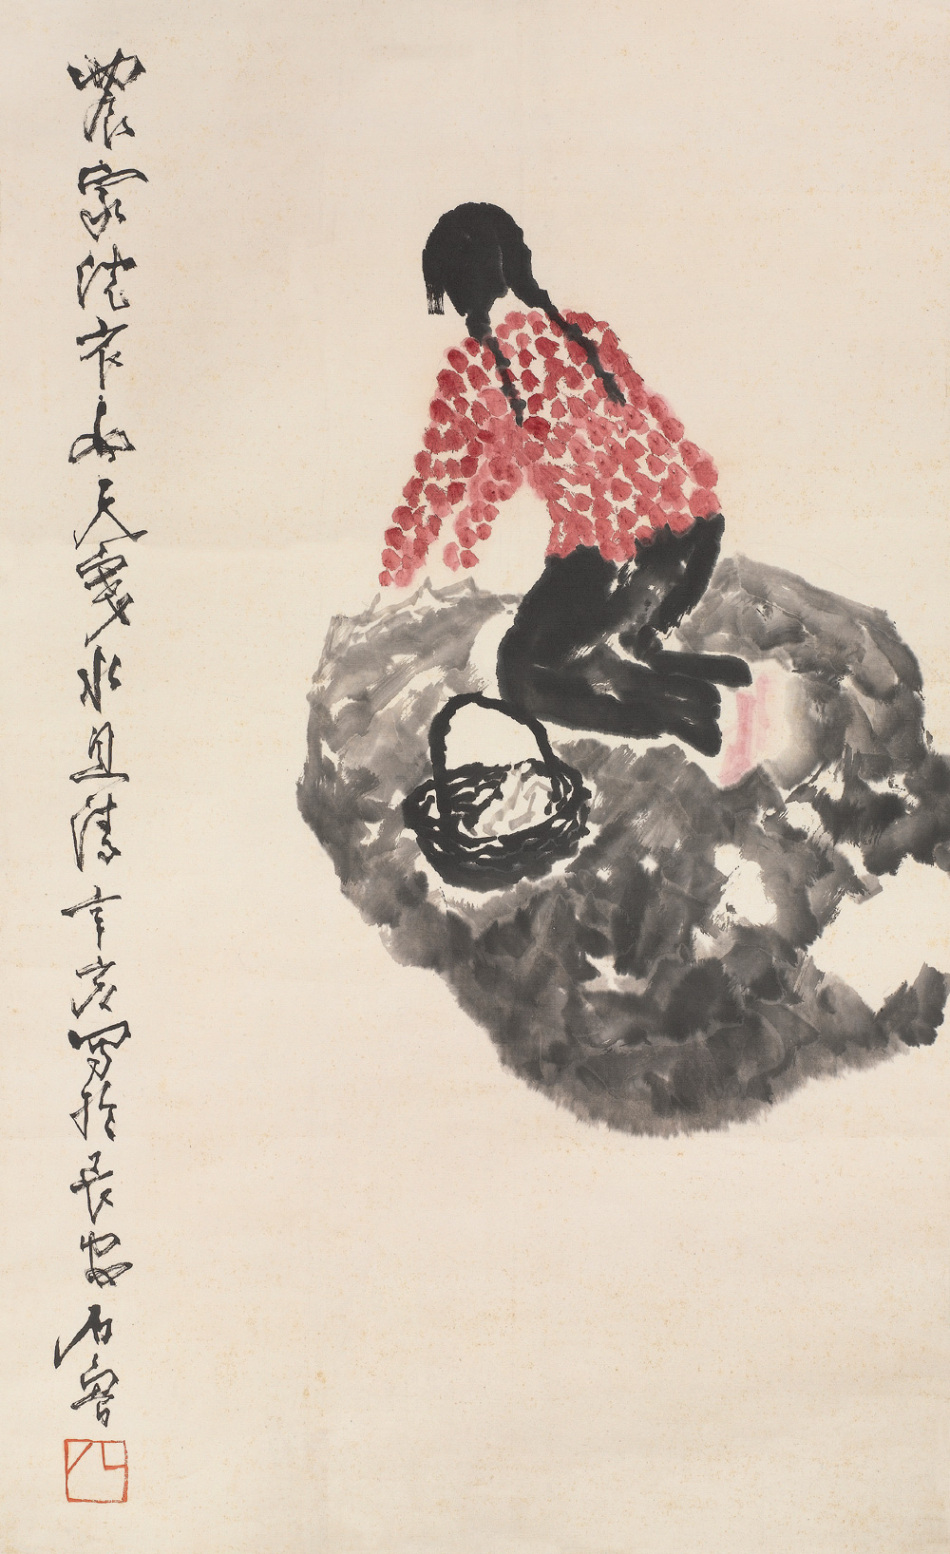 農家浣衣女天寒水且清辛亥寫於長安石魯